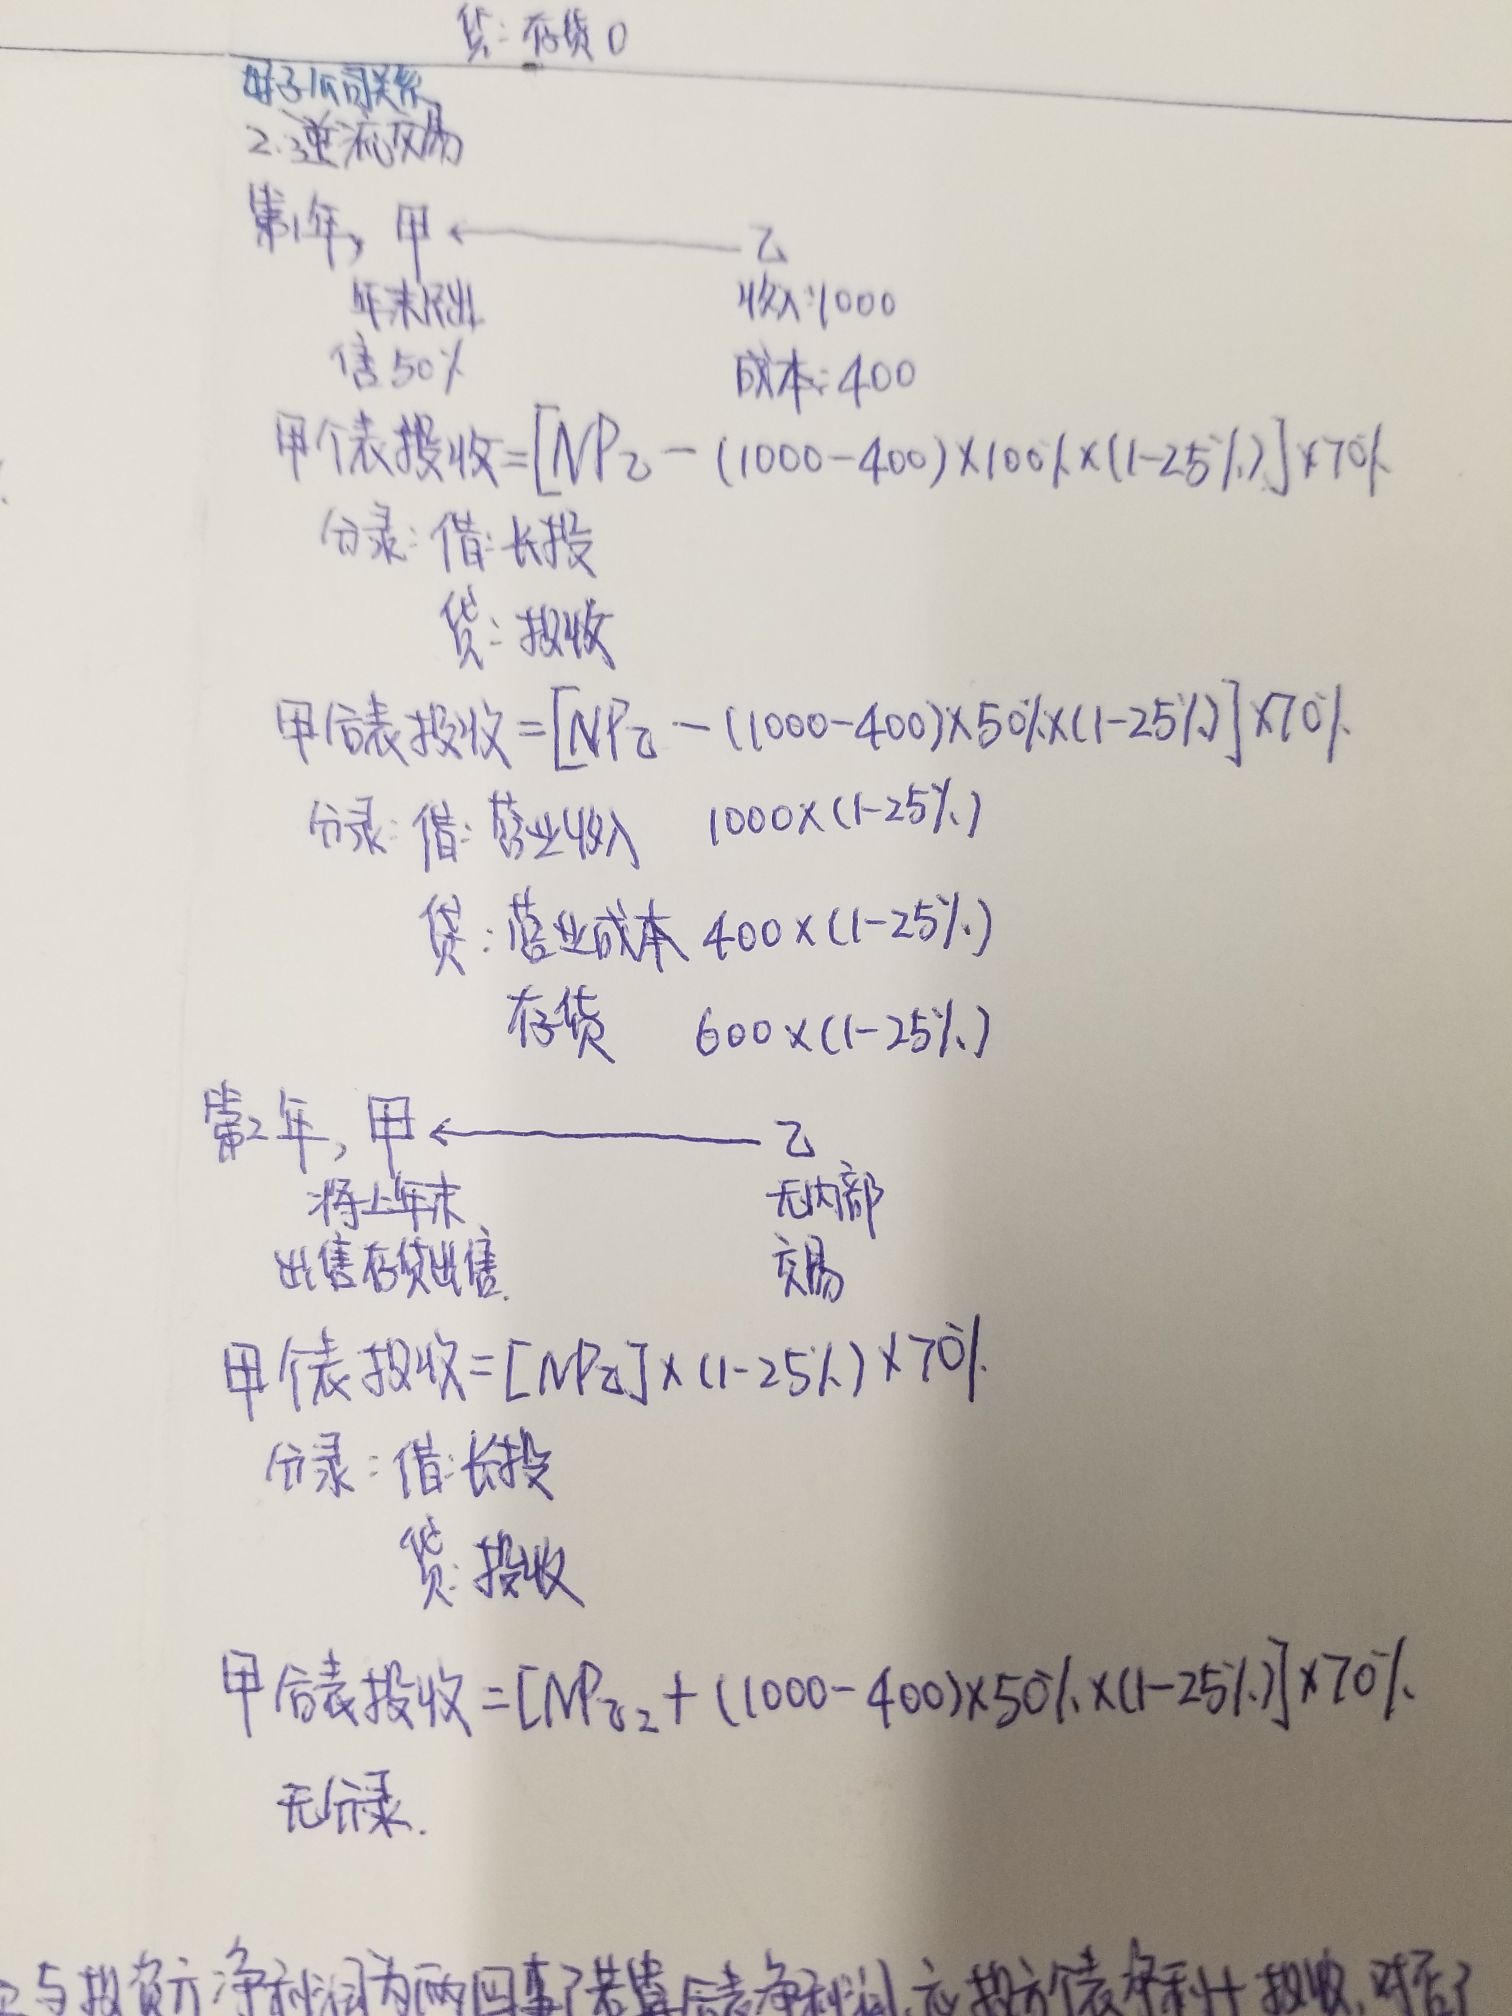 贷：存货 0
母子公司关系
2.逆流交易
第1年，甲 ← 乙
年末仅出 收入：1000
售50% 成本：400
甲个表投收=[NP乙-(1000-400)×100%×(1-25%)]×70%
分录：借：长投
贷：投收
甲合表投收=[NP乙-(1000-400)×50%×(1-25%)]×70%
分录：借：营业收入 1000×(1-25%)
贷：营业成本 400×(1-25%)
存货 600×(1-25%)
第2年，甲 ← 乙
将上年末 无内部
出售存货出售. 交易
甲个表投收=[NP乙]×(1-25%)×70%
分录：借：长投
贷：投收
甲合表投收=[NP乙2+(1000-400)×50%×(1-25%)]×70%
无分录.
与投资方净利润为两回事了若算合表净利润,应投方个表净利+投收,对否了